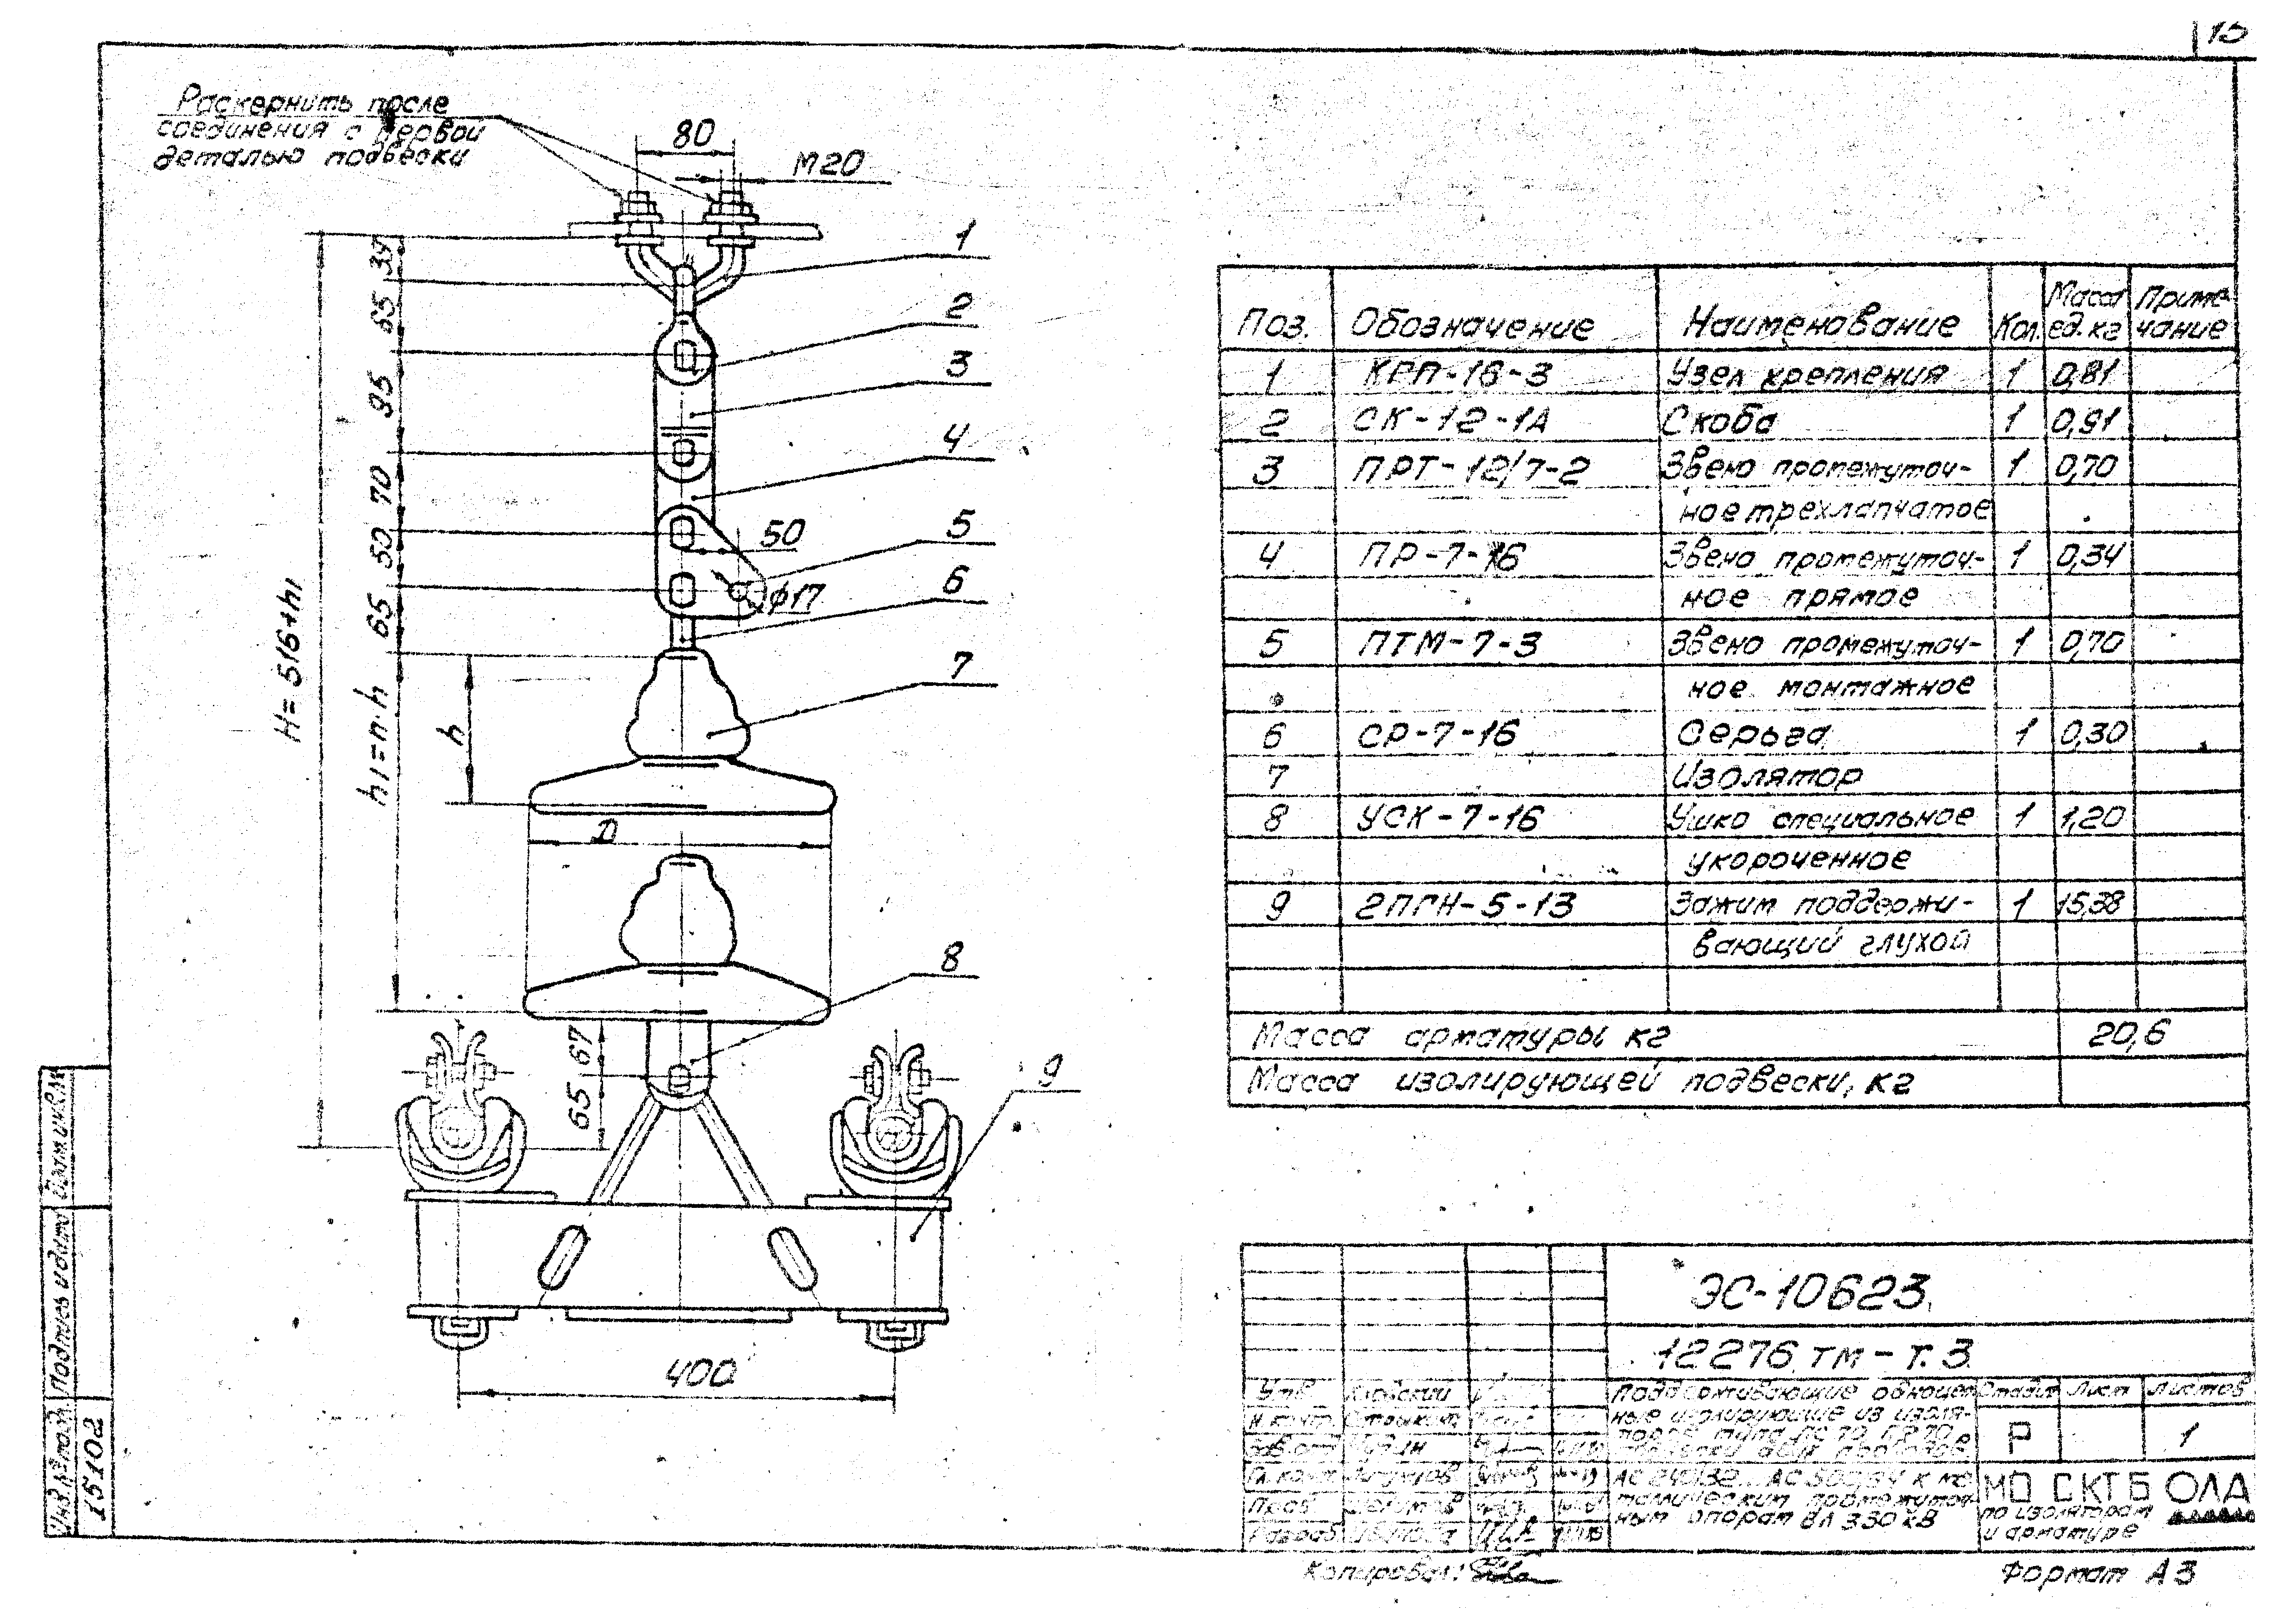 15
Раскернить после
соединения с первой
деталью подвески
80
М20
1
39
65
2
95
3
4
70
50
50
5
ф17
6
65
H = 516+h1
h1 = n·h
h
7
D
8
67
65
9
400
Поз. Обозначение Наименование Кол. Масса ед. кг Приме чание
1 КГП-16-3 Узел крепления 1 0,81
2 СК-12-1А Скоба 1 0,91
3 ПРТ-12/7-2 Звено промежуточ- 1 0,70
ное трехлапчатое
4 ПР-7-16 Звено промежуточ- 1 0,34
ное прямое
5 ПТМ-7-3 Звено промежуточ- 1 0,70
ное монтажное
6 СР-7-16 Серьга 1 0,30
7 Изолятор
8 УСК-7-16 Ушко специальное 1 1,20
укороченное
9 2ПГН-5-13 Зажим поддержи- 1 15,38
вающий глухой
Масса арматуры кг 20,6
Масса изолирующей подвески, кг
ЭС-10623
12276 тм - т. 3
Поддерживающие одноцеп
ные изолирующие из изоля-
торов типа
АС 240/32...
таллическим промежуточ-
ным опорам ВЛ 330 кВ
Стадия Лист Листов
Р 1
МО СКТБ ОЛД
по изоляторам
и арматуре
Утв.
Н. контр.
Пров.
Разраб.
Инв. № подл.
15102
Подпись и дата
Взам. инв. №
Копировал:
Формат А3